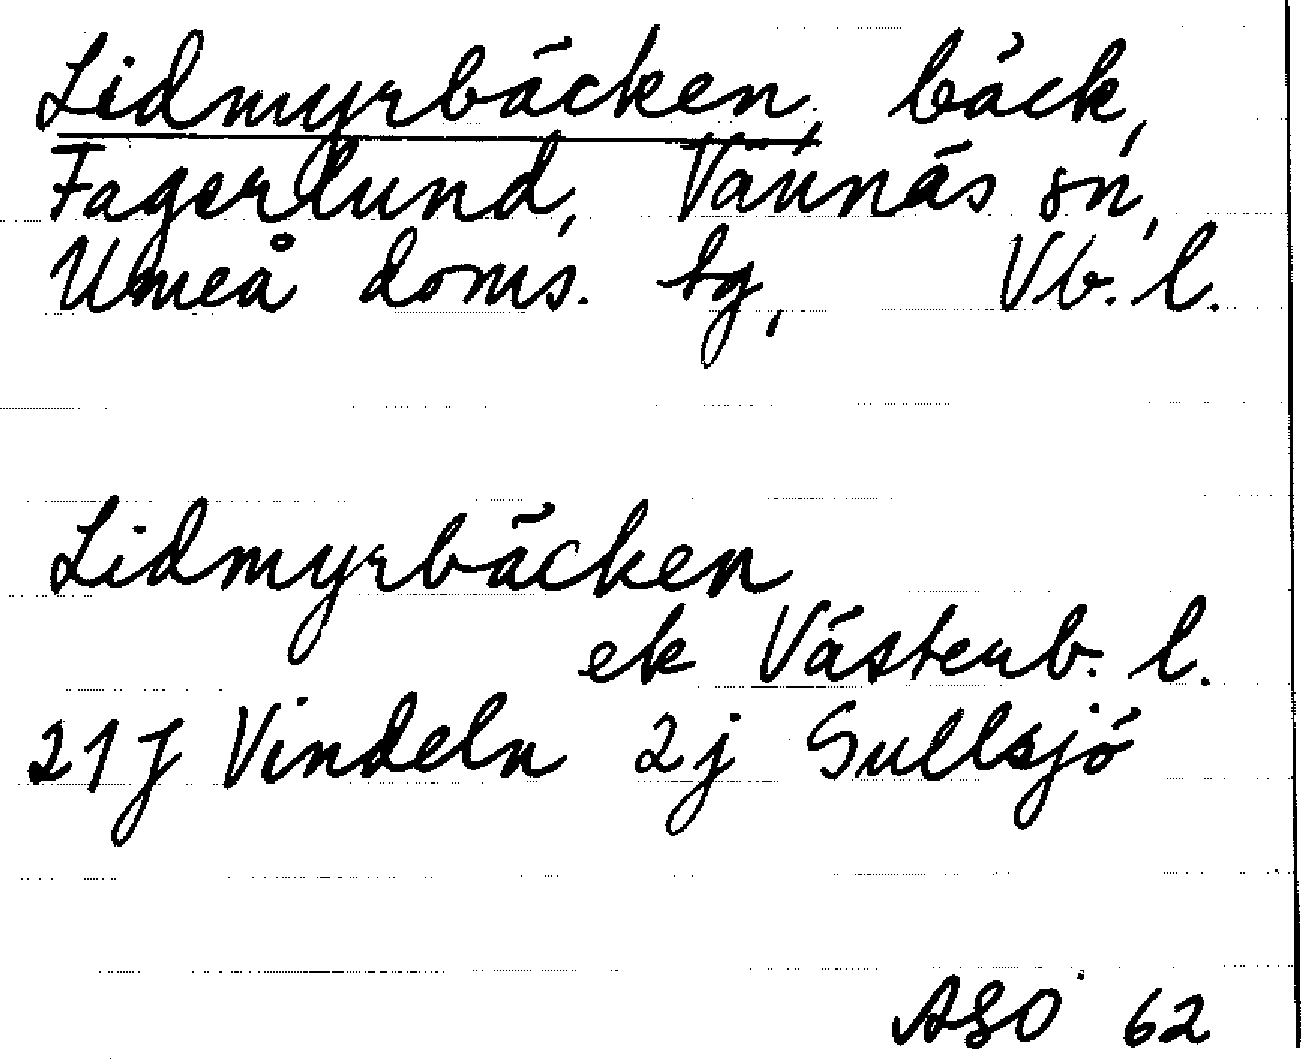 Lidmyrbäcken, bäck,
Fagerlund, Vännäs sn,
Umeå doms. tg, Vb. l.
Lidmyrbäcken
ek Västerb. l.
21J Vindeln 2j Sullsjö
ASO 62